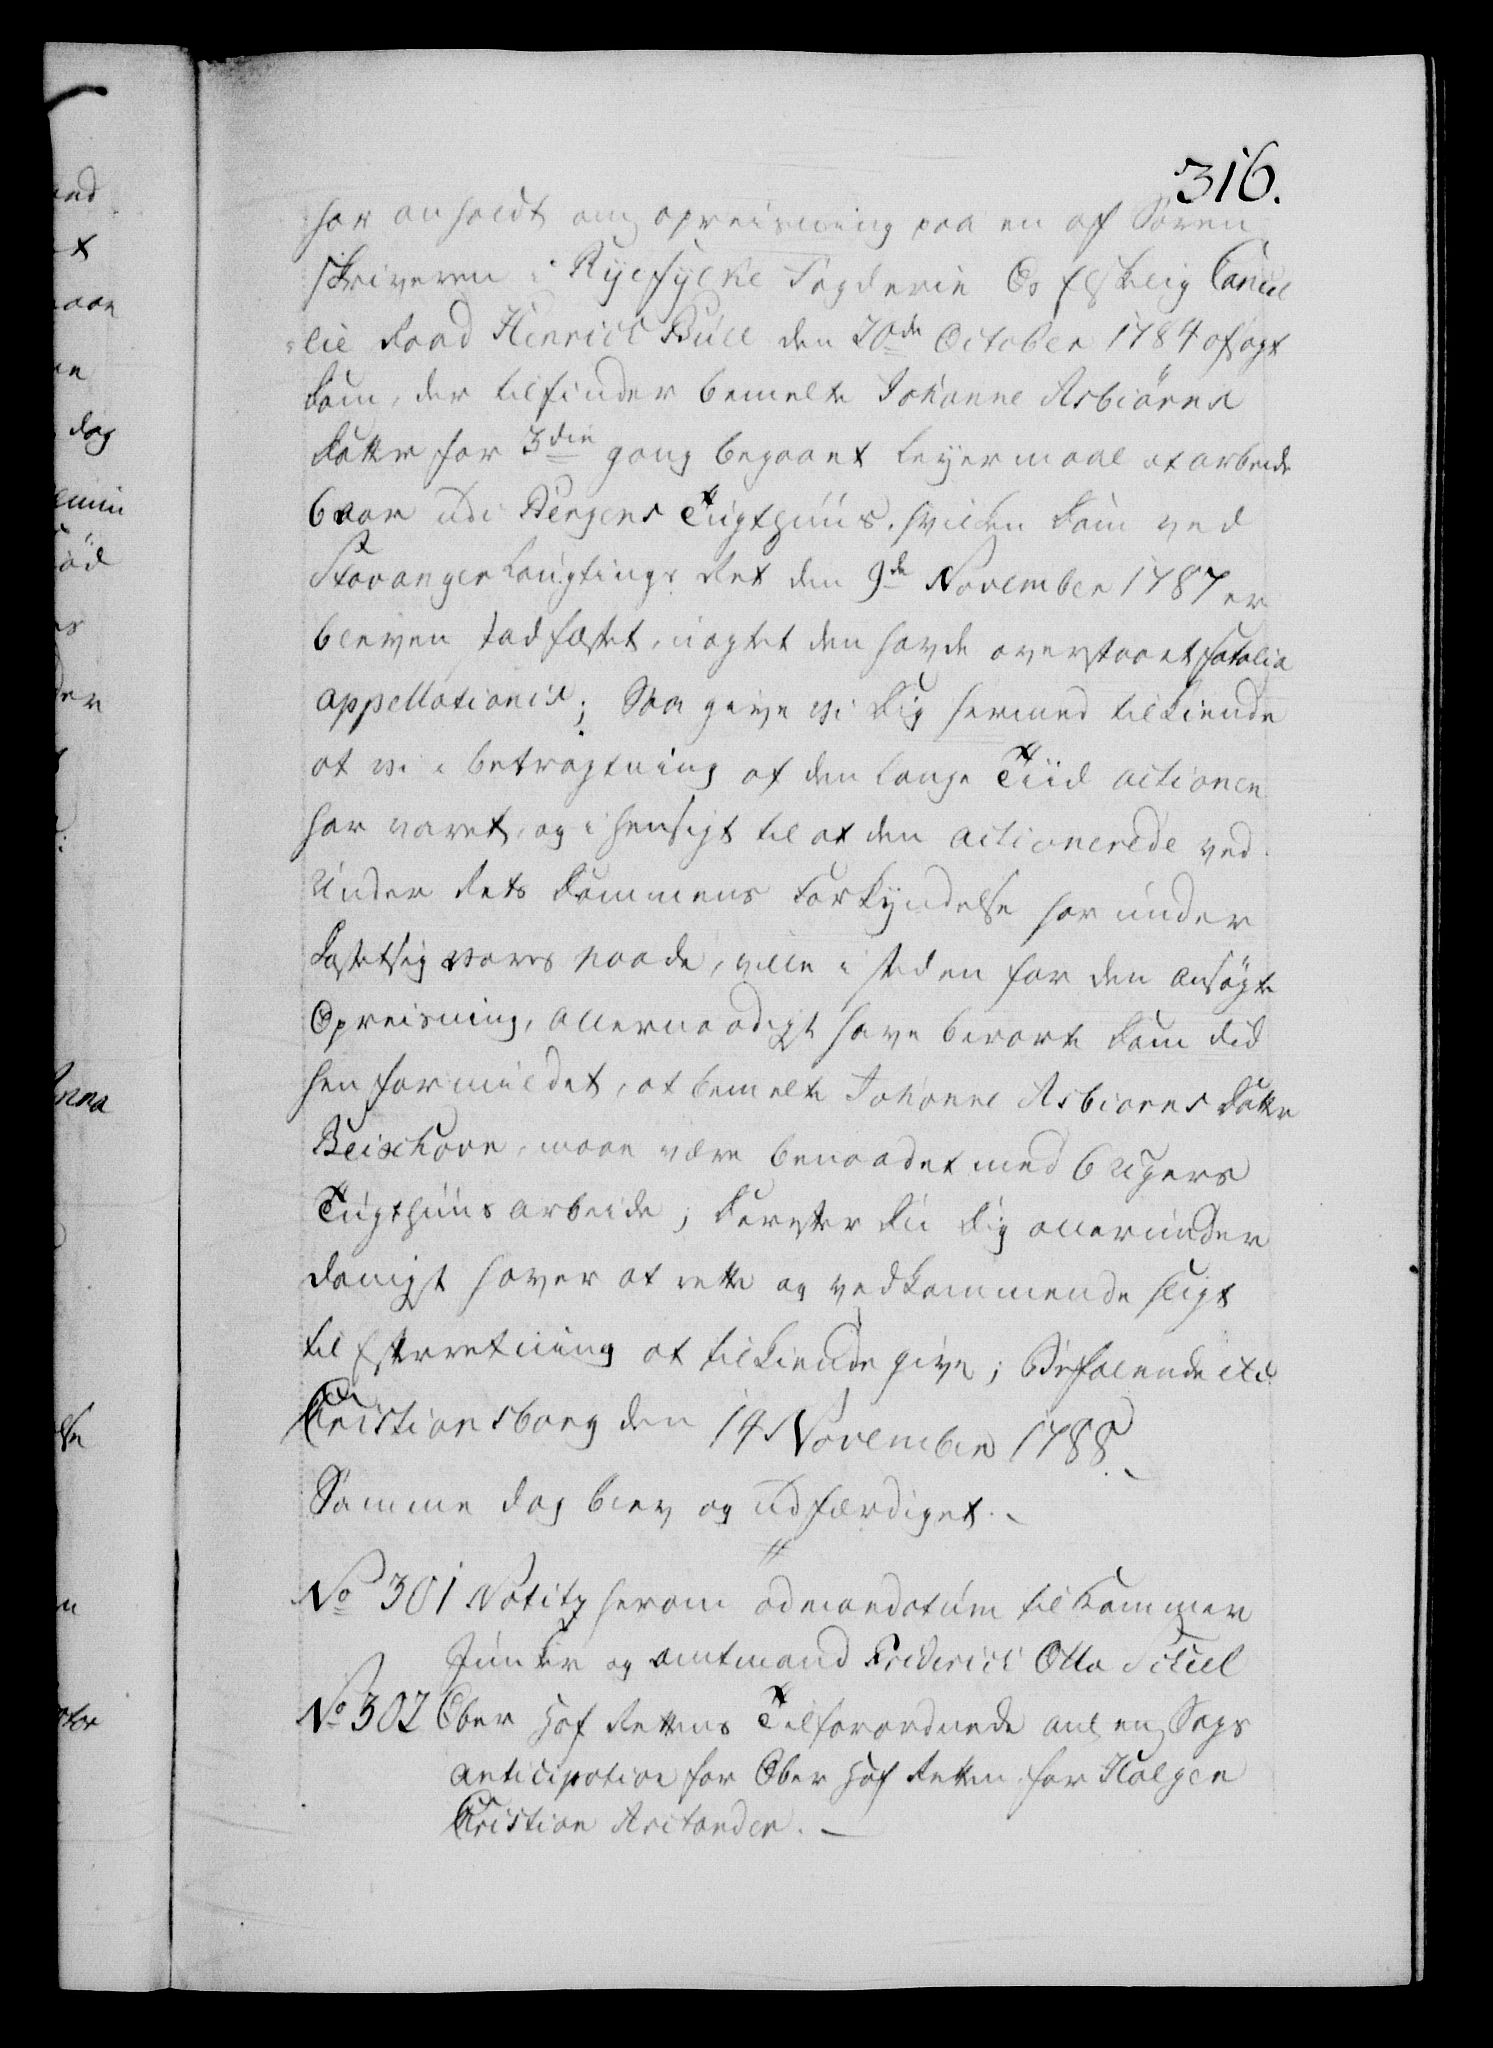 316.
har anholdt om opreisning paa en af Soren
skriveren i Ryefylke Fogderie Os Elskelig Cancel
lie Raad Henrich Bull den 20de October 1784 afsagt
Dom, der tilfinder bemelte Johanne Asbiørns
Datter for 3die gang begaaet Leyermaal at arbeide
6 aar udi Bergens Tugthuus. hvilken Dom ved
Stavanger Laugtings Ret den 9de November 1787 er
bleven stadfæstet, uagtet den havde overstaaet fatalia
appellationis; Saa give vi Dig hermed tilkiende
at vi i betragtning af den lange Tiid actionen
har varet, og i hensigt til at den actionerede ved
Under Rets Dommens Forkyndelse har under
kastet sig vores Naade, ville i steden for den ansøgte
Opreisning, allernaadigst have berørte Dom did
hen formildet, at bemelte Johanne Asbiørns Datter
Beischove, maae være benaadet med 6 Ugers
Tugthuus arbeide; Derefter Du Dig allerunder
danigst haver at rette og vedkommende sligt
til Efterretning at tilkiende give; Befalende etc.
Christiansborg den 14 November 1788.
Samme dag blev og udfærdiget.
No 301 Notitz herom ad mandatum til Kammer
Junker og Amtmand Friderich Otto Scheel
No 302 Ober Hof Rettens Tilforordnede anl en Sags
anticipation for Ober Hof Retten for Holger
Christian Arctander.
and
dag
Anna